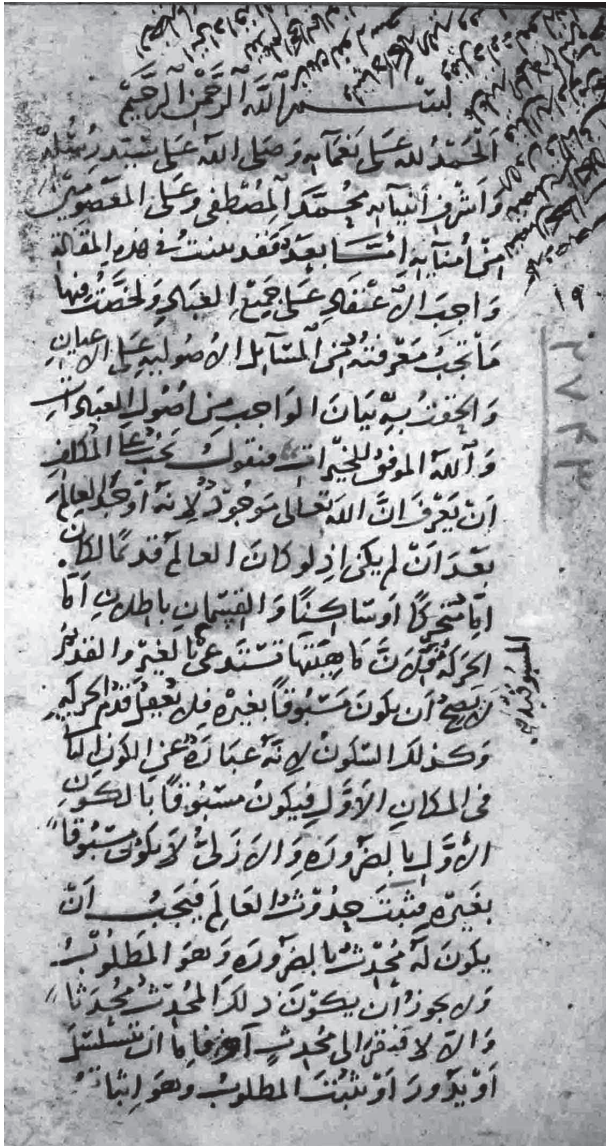 بسم الله الرحمن الرحيم
الحمد لله على نعمائه وصلى الله على سيد رسله
واشرف انبيائه محمد المصطفى وعلى المعصومين
من أمنائه اما بعد فقد بينت في هذه المقالة
واجب الاعتقاد على جميع العباد ولخصت فيها
ما تجب معرفته من المسائل الاصولية على الاعيان
والحقت به بيان الواجب من اصول العبادات
والله الموفق للخيرات فنقول يجب على المكلف
ان يعرف ان الله تعالى موجود لانه اوجد العالم
بعد ان لم يكن اذ لو كان العالم قديما لكان
اما متحركا او ساكنا والقسمان باطلان اما
الحركة فلان ماهيتها تستدعي بالغير والقديم
المسبوقية
لا يصح ان يكون مسبوقا بغيره فلا يعقل قدم الحركة
وكذلك السكون لانه عبارة عن الكون الثاني
في المكان الاول فيكون مسبوقا بالكون
الأول بالضرورة والازلي لا يكون مسبوقا
بغيره فثبت حدوث العالم فيجب ان
يكون له محدث بالضرورة وهو المطلوب
ولا يجوز أن يكون ذلك المحدث محدثا
والا لافتقر الى محدث آخر فاما ان يتسلسل
او يدور او يثبت المطلوب وهو اثبات
١٩